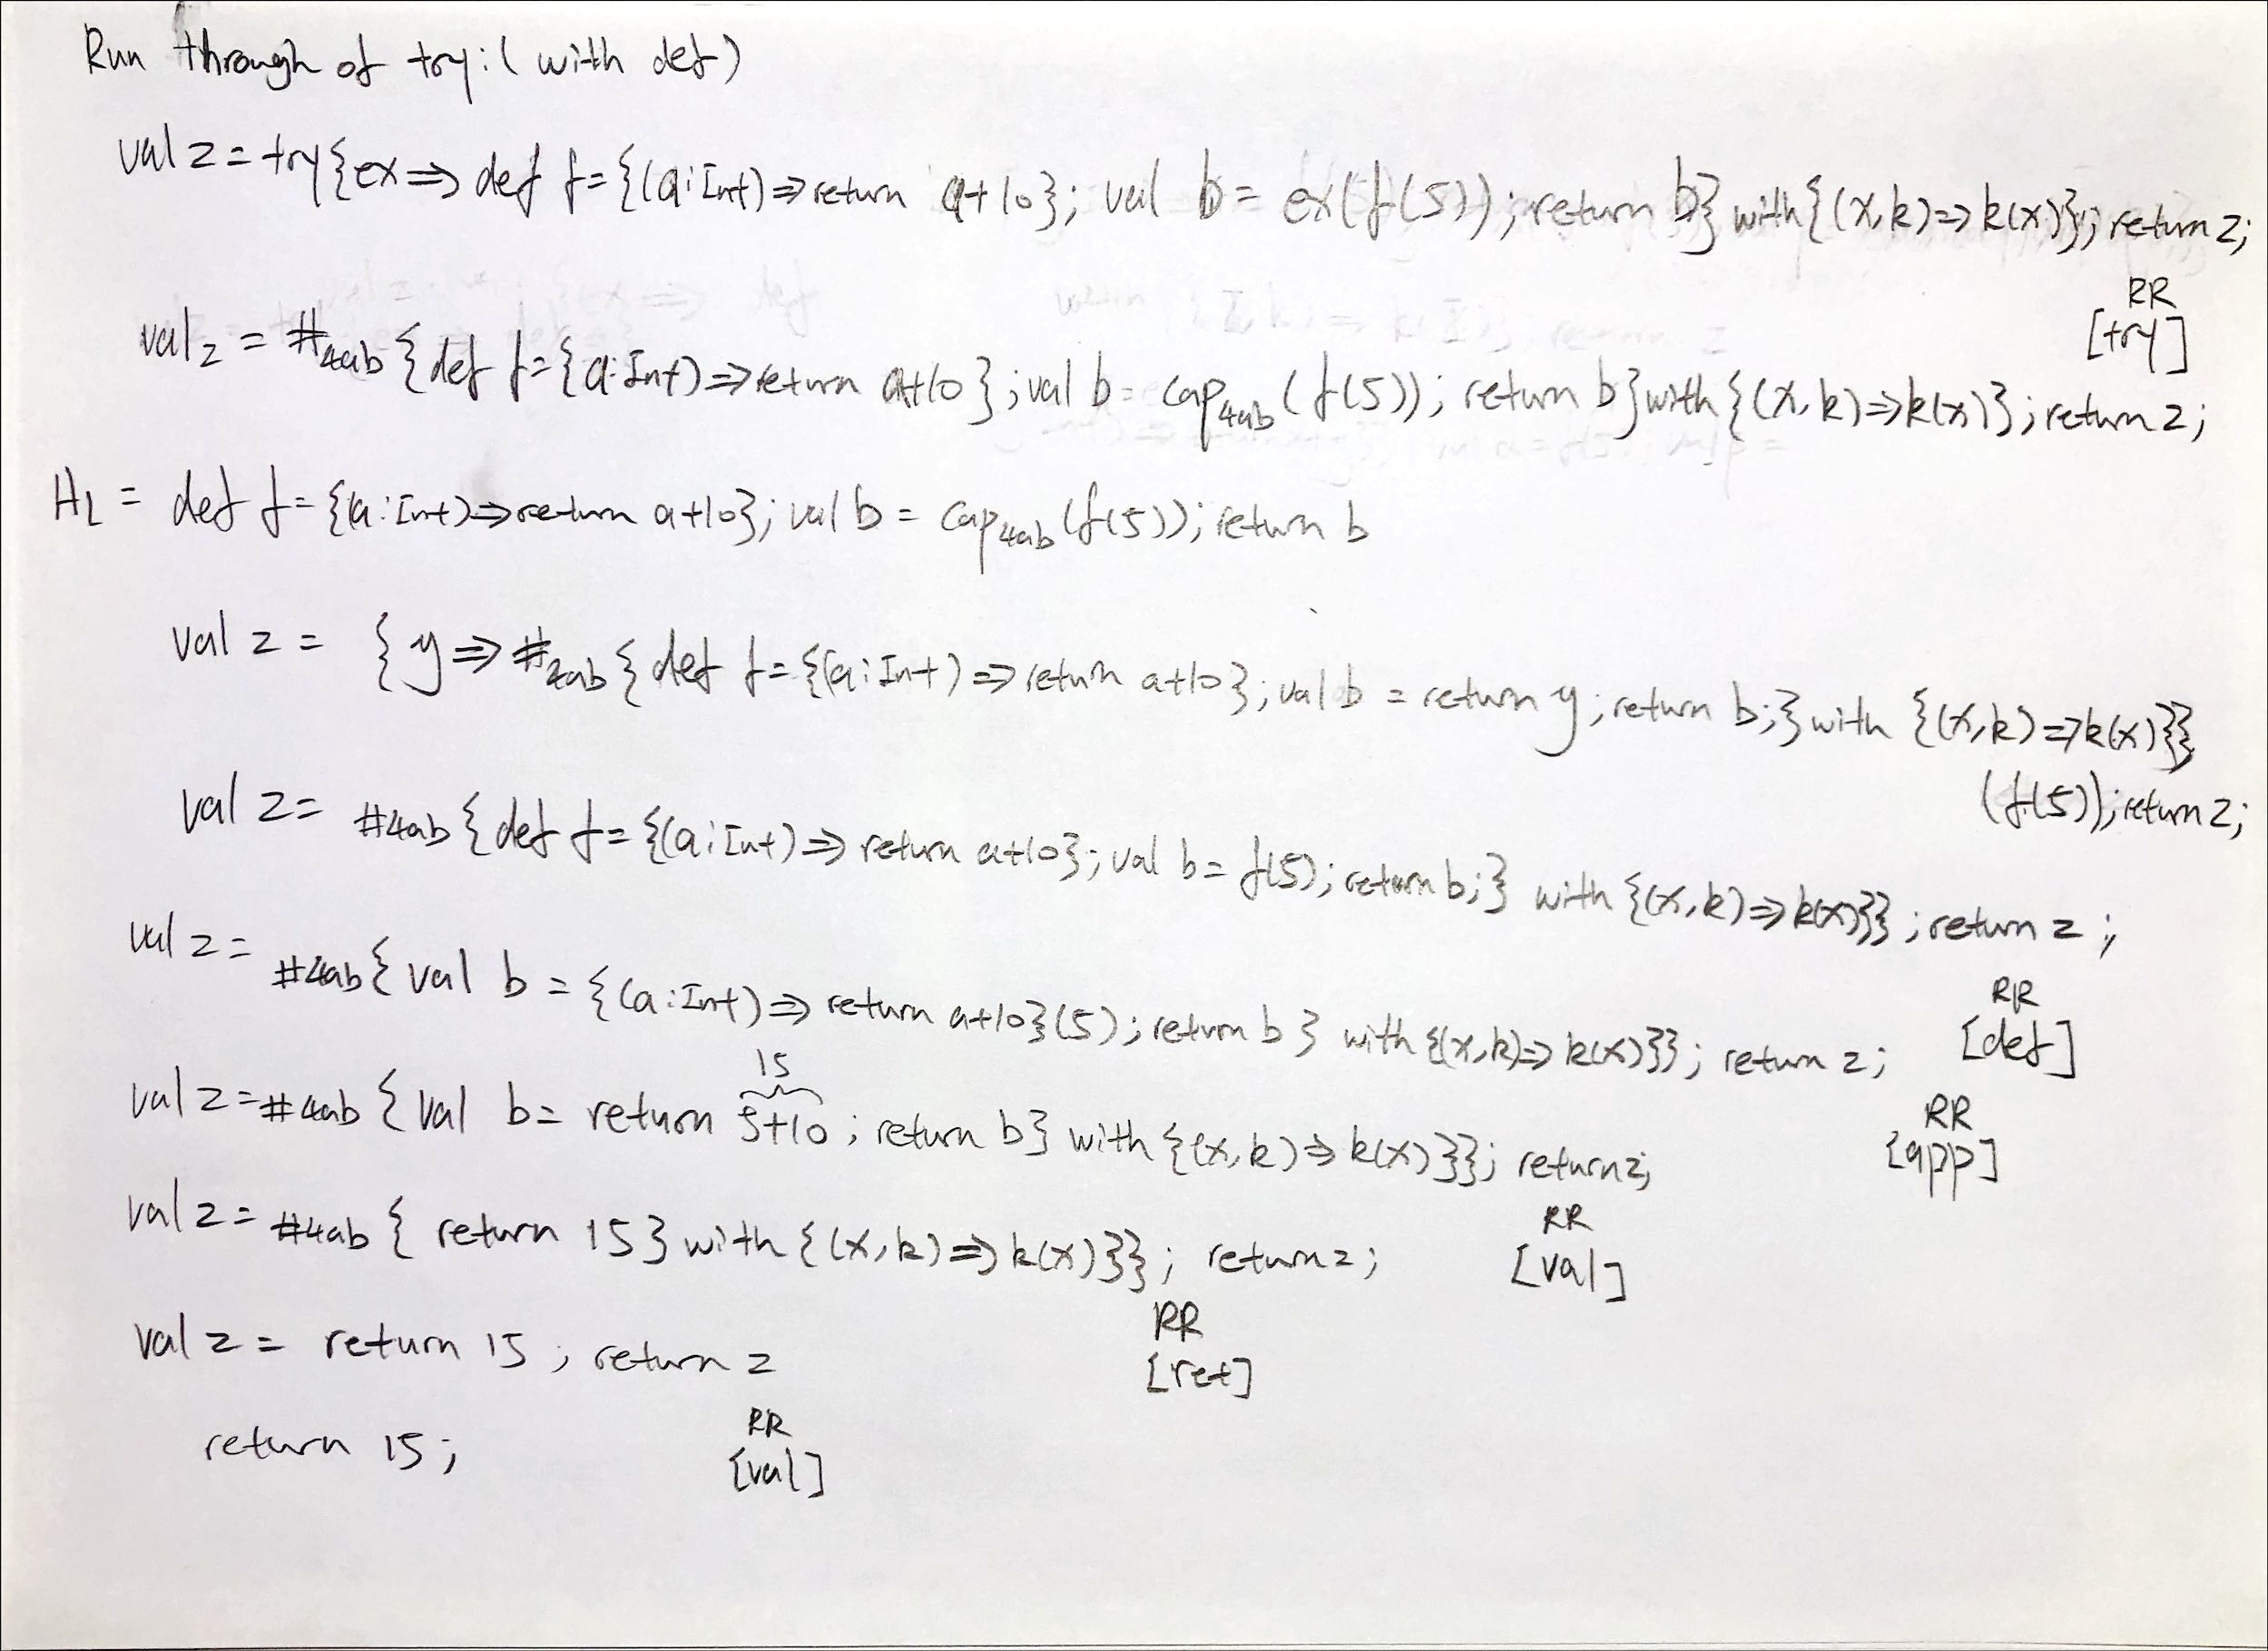 Run through of try: ( with def )
val z = try{ex => def f = {(a:Int) => return a+10}; val b = ex(f(5)); return b} with{(x,k) => k(x)}; return z;
RR
[try]
val z = #4ab {def f = {a:Int) => return a+10}; val b = cap4ab (f(5)); return b} with {(x,k) => k(x)}; return z;
HL = def f = {(a:Int) => return a+10}; val b = cap4ab (f(5)); return b
val z = { y => #4ab { def f = {(a:Int) => return a+10}; val b = return y; return b;} with {(x,k) => k(x)}}
(f(5)); return z;
val z = #4ab { def f = {(a:Int) => return a+10}; val b = f(5); return b;} with {(x,k) => k(x)}} ; return z ;
val z = #4ab { val b = {(a:Int) => return a+10}(5); return b } with {(x,k) => k(x)}}; return z;
RR
[def]
15
val z = #4ab { val b = return 5+10 ; return b} with {(x,k) => k(x)}}; return z;
RR
[app]
val z = #4ab { return 15} with {(x,k) => k(x)}}; return z;
RR
[val]
val z = return 15 ; return z
RR
[ret]
return 15;
RR
[val]